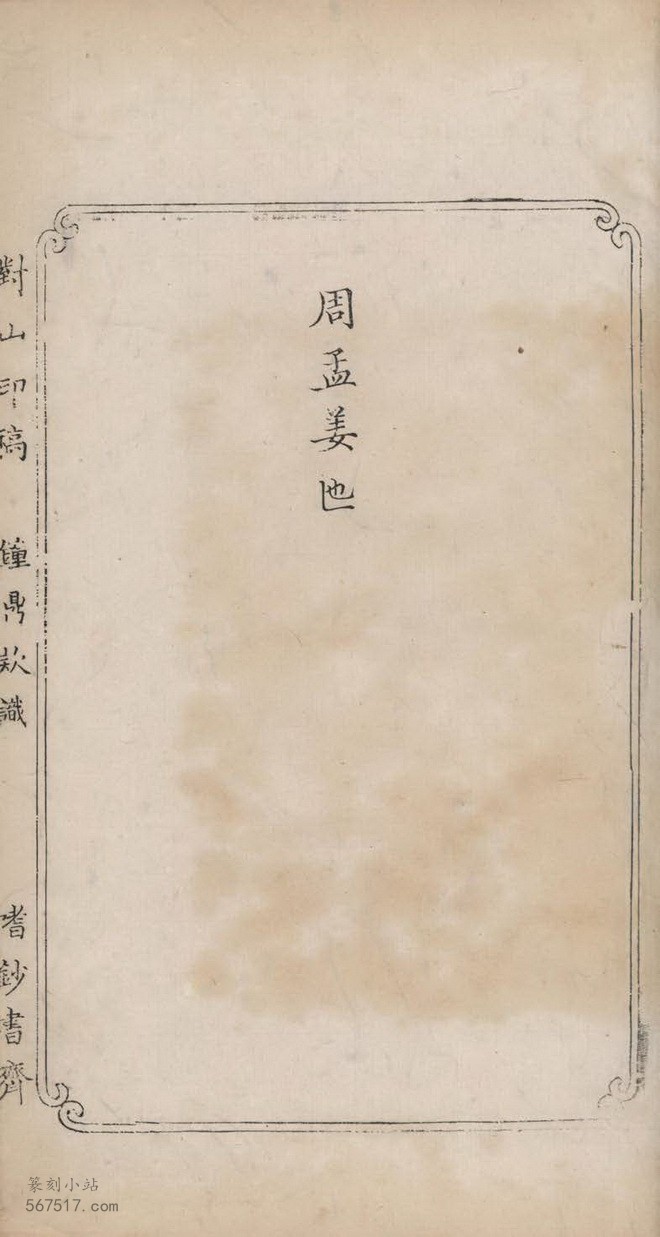 周孟姜匜
對山印稿 鐘鼎欵識 嗜鈔書齋
篆刻小站
567517.com